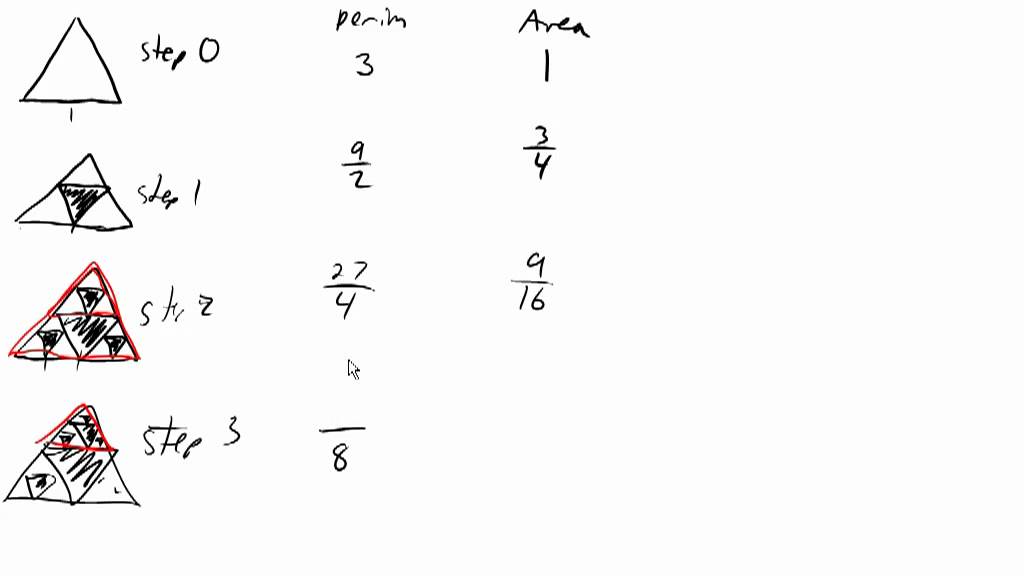 perim Area
step 0 3 1
1
step 1 9/2 3/4
27/4 9/16
step 3 /8